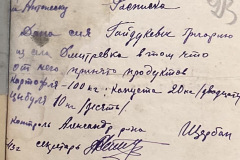 Расписка
Дана сия Гайдукевск Григорию
из с. Дмитревка в том что
от него принято продуктов
картофля - 100 кг. капуста 20 кг / двадцать
цибуля 10 кг / десять /
Контроль Александр. р-на Щербан
секретарь